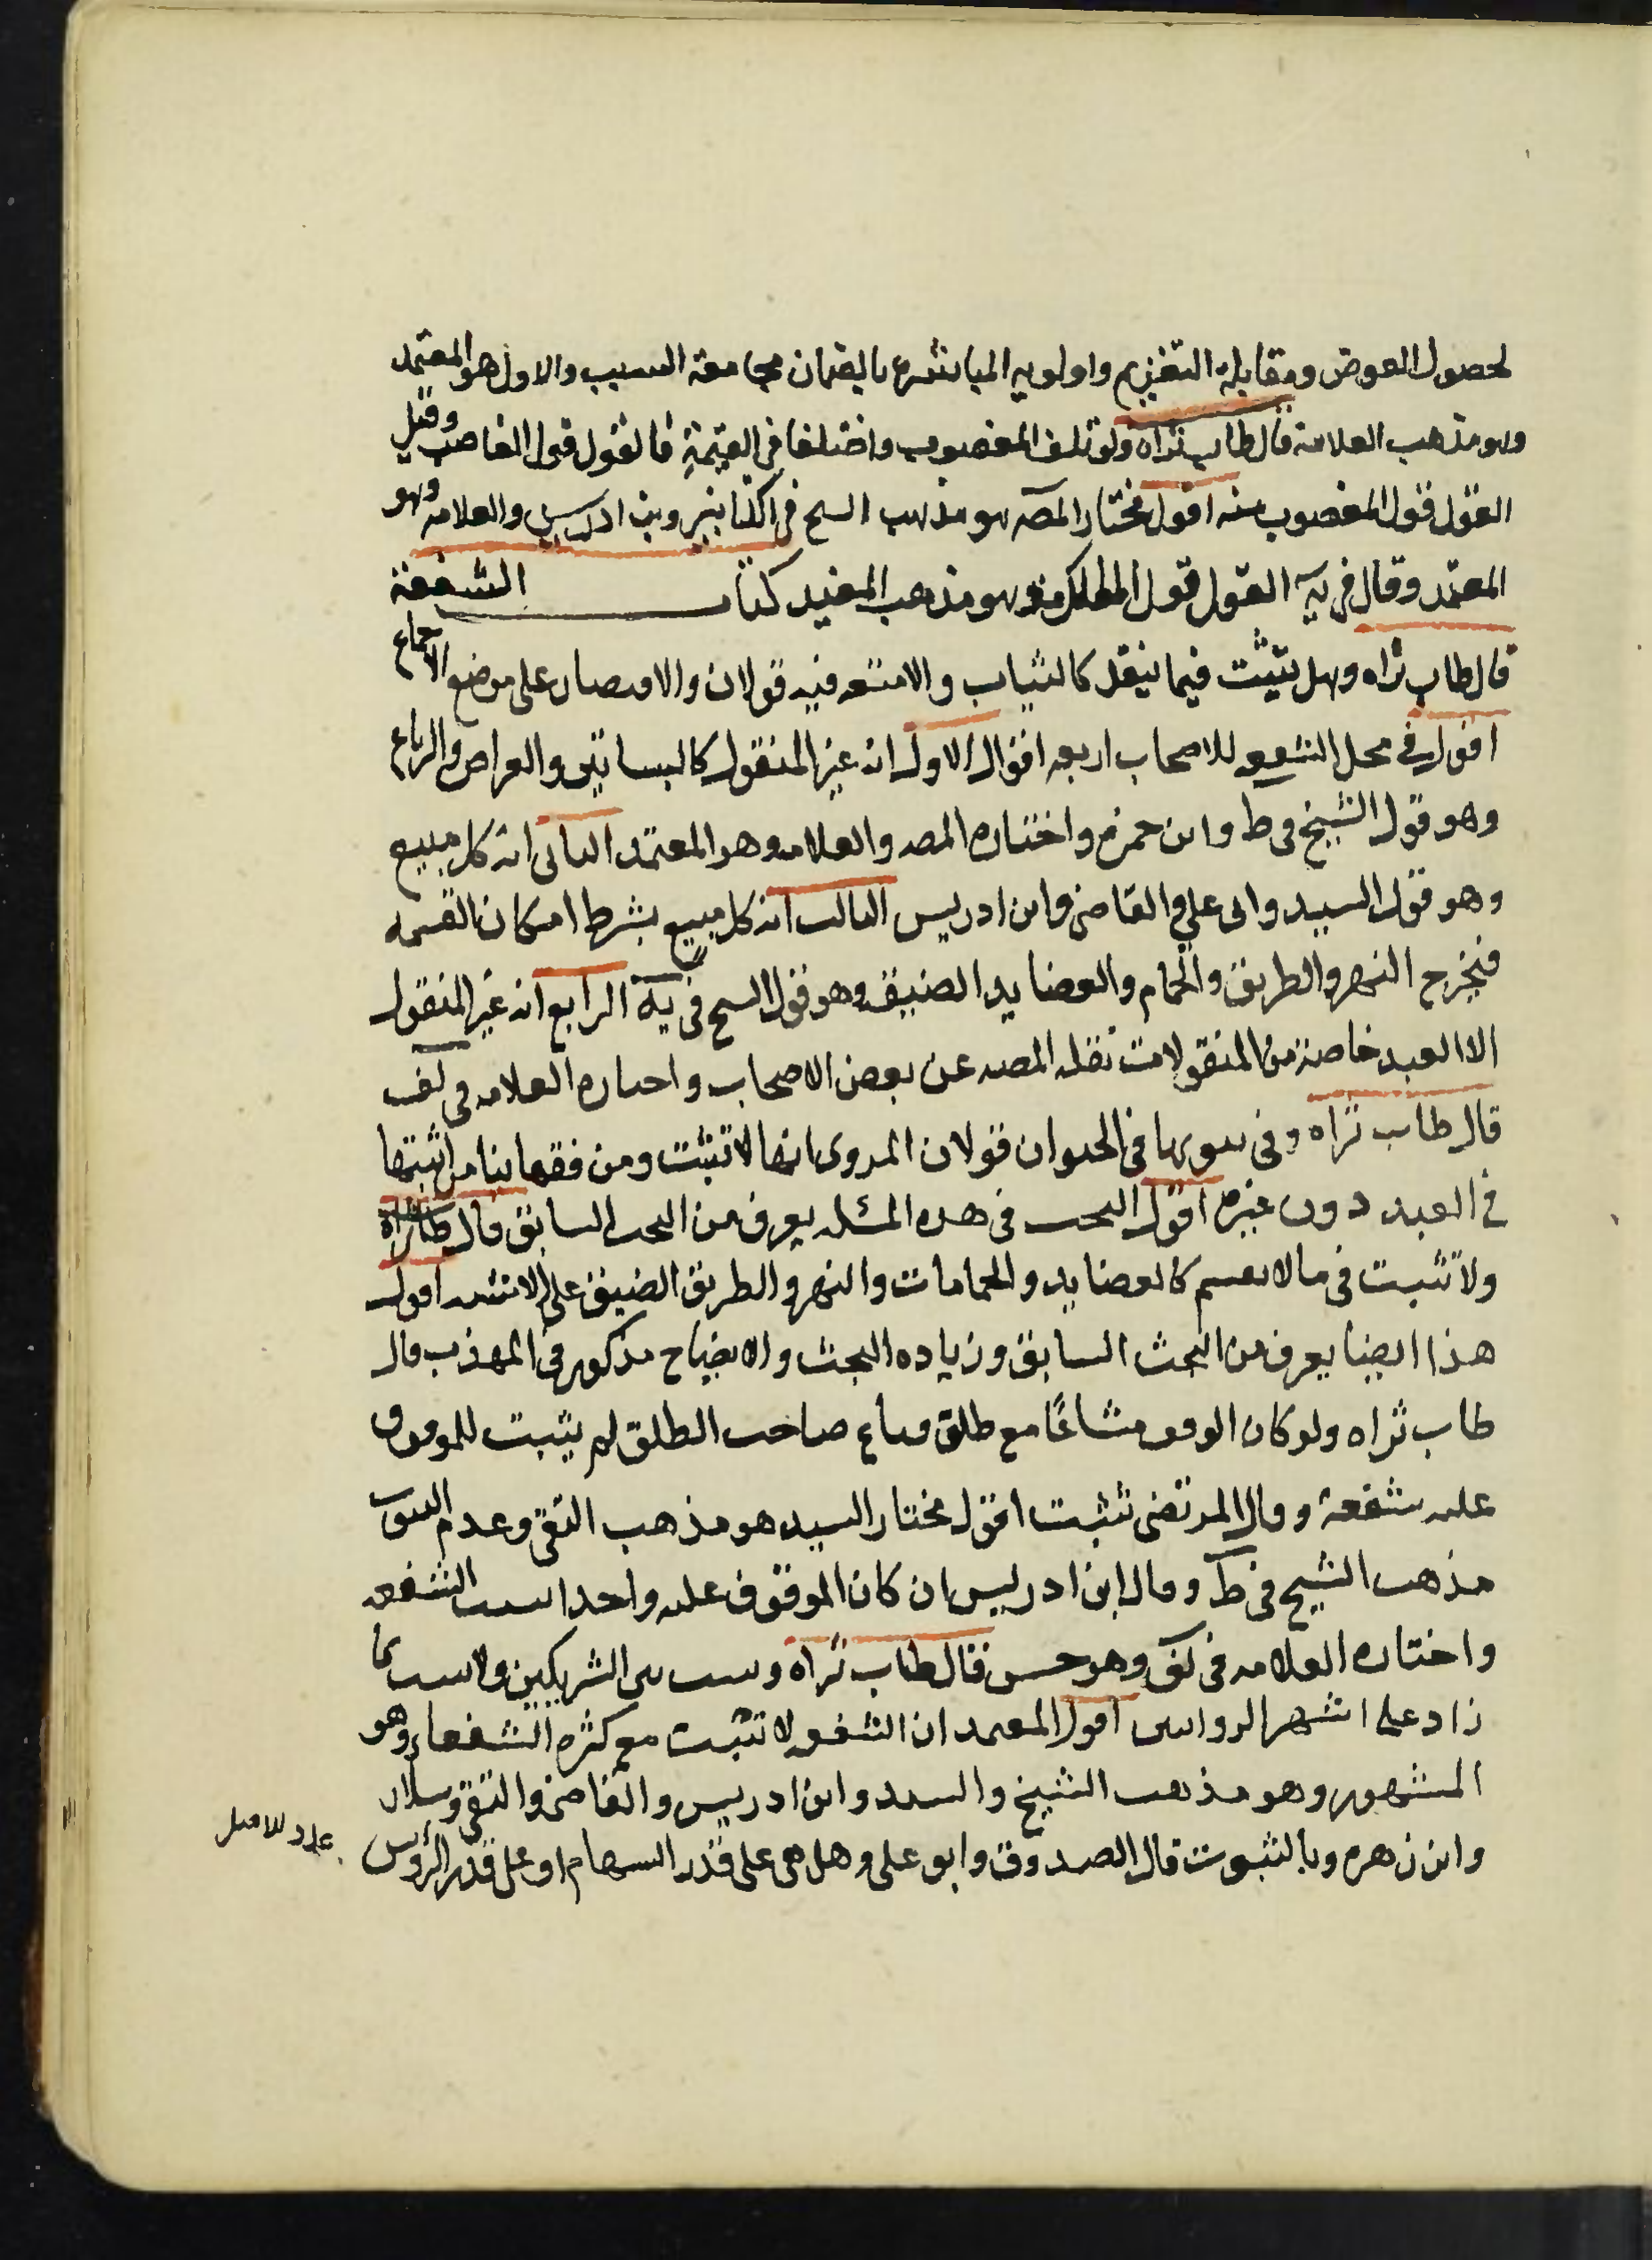 لحصول العوض ومقابلة التغريم واولويه المباشره بالضمان مجامعة السبب والاول هو المعتمد
وهو مذهب العلامة قال طاب ثراه ولو تلف المغصوب واختلفا في القيمة فالقول قول الغاصب وقيل
القول قول المغصوب منه اقول مختار المصـ هو مذهب الشيخ في الكتابين وبن ادريس والعلامه وهو
المعتمد وقال في يه القول قول المالك وهو مذهب المفيد كتاب الشفعة
قال طاب ثراه وهل تثبت فيما ينقل كالثياب والامتعه فيه قولان والاقتصار على موضع الاجماع
اقول في محل الشفعه للاصحاب اربعه اقوال الاول انه غير المنقول كالبساتين والعراص والرباع
وهو قول الشيخ في ط وابن حمزه واختاره المصـ والعلامه وهو المعتمد الثاني انه كل مبيع
وهو قول السيد وابي علي والقاضي وابن ادريس الثالث انه كل مبيع بشرط امكان القسمه
فيخرج النهر والطريق والحمام والعضايد الضيقه وهو قول الشيخ في يه الرابع انه غير المنقول
الا العبد خاصة من المنقولات نقله المصـ عن بعض الاصحاب واختاره العلامه في لف
قال طاب ثراه وفي ثبوتها في الحيوان قولان المروي انها لا تثبت ومن فقهائنا من اثبتها
في العبد دون غيره اقول البحث في هذه المسئله يعرف من البحث السابق قال طاب ثراه
ولا تثبت في ما لا يقسم كالعضايد والحمامات والنهر والطريق الضيق على الاشبه اقول
هذا ايضا يعرف من البحث السابق وزياده البحث والايضاح مذكور في المهذب قال
طاب ثراه ولو كان الوقف مشاعًا مع طلق فباع صاحب الطلق لم يثبت للموقوف
عليه شفعة وقال المرتضى تثبت اقول مختار السيد هو مذهب التقي وعدم الثبوت
مذهب الشيخ في ط وقال ابن ادريس ان كان الموقوف عليه واحدا ثبتت الشفعه
واختاره العلامه في لف وهو حسن قال طاب ثراه وتثبت بين الشريكين ولا تثبت لما
زاد على اشهر الروايتين اقول المعتمد ان الشفعه لا تثبت مع كثره الشفعاء وهو
المشهور وهو مذهب الشيخ والسيد وابن ادريس والقاضي والتقي وسلار
وابن زهره وبالثبوت قال الصدوق وابو علي وهل هي على قدر السهام او على قدر الرؤس